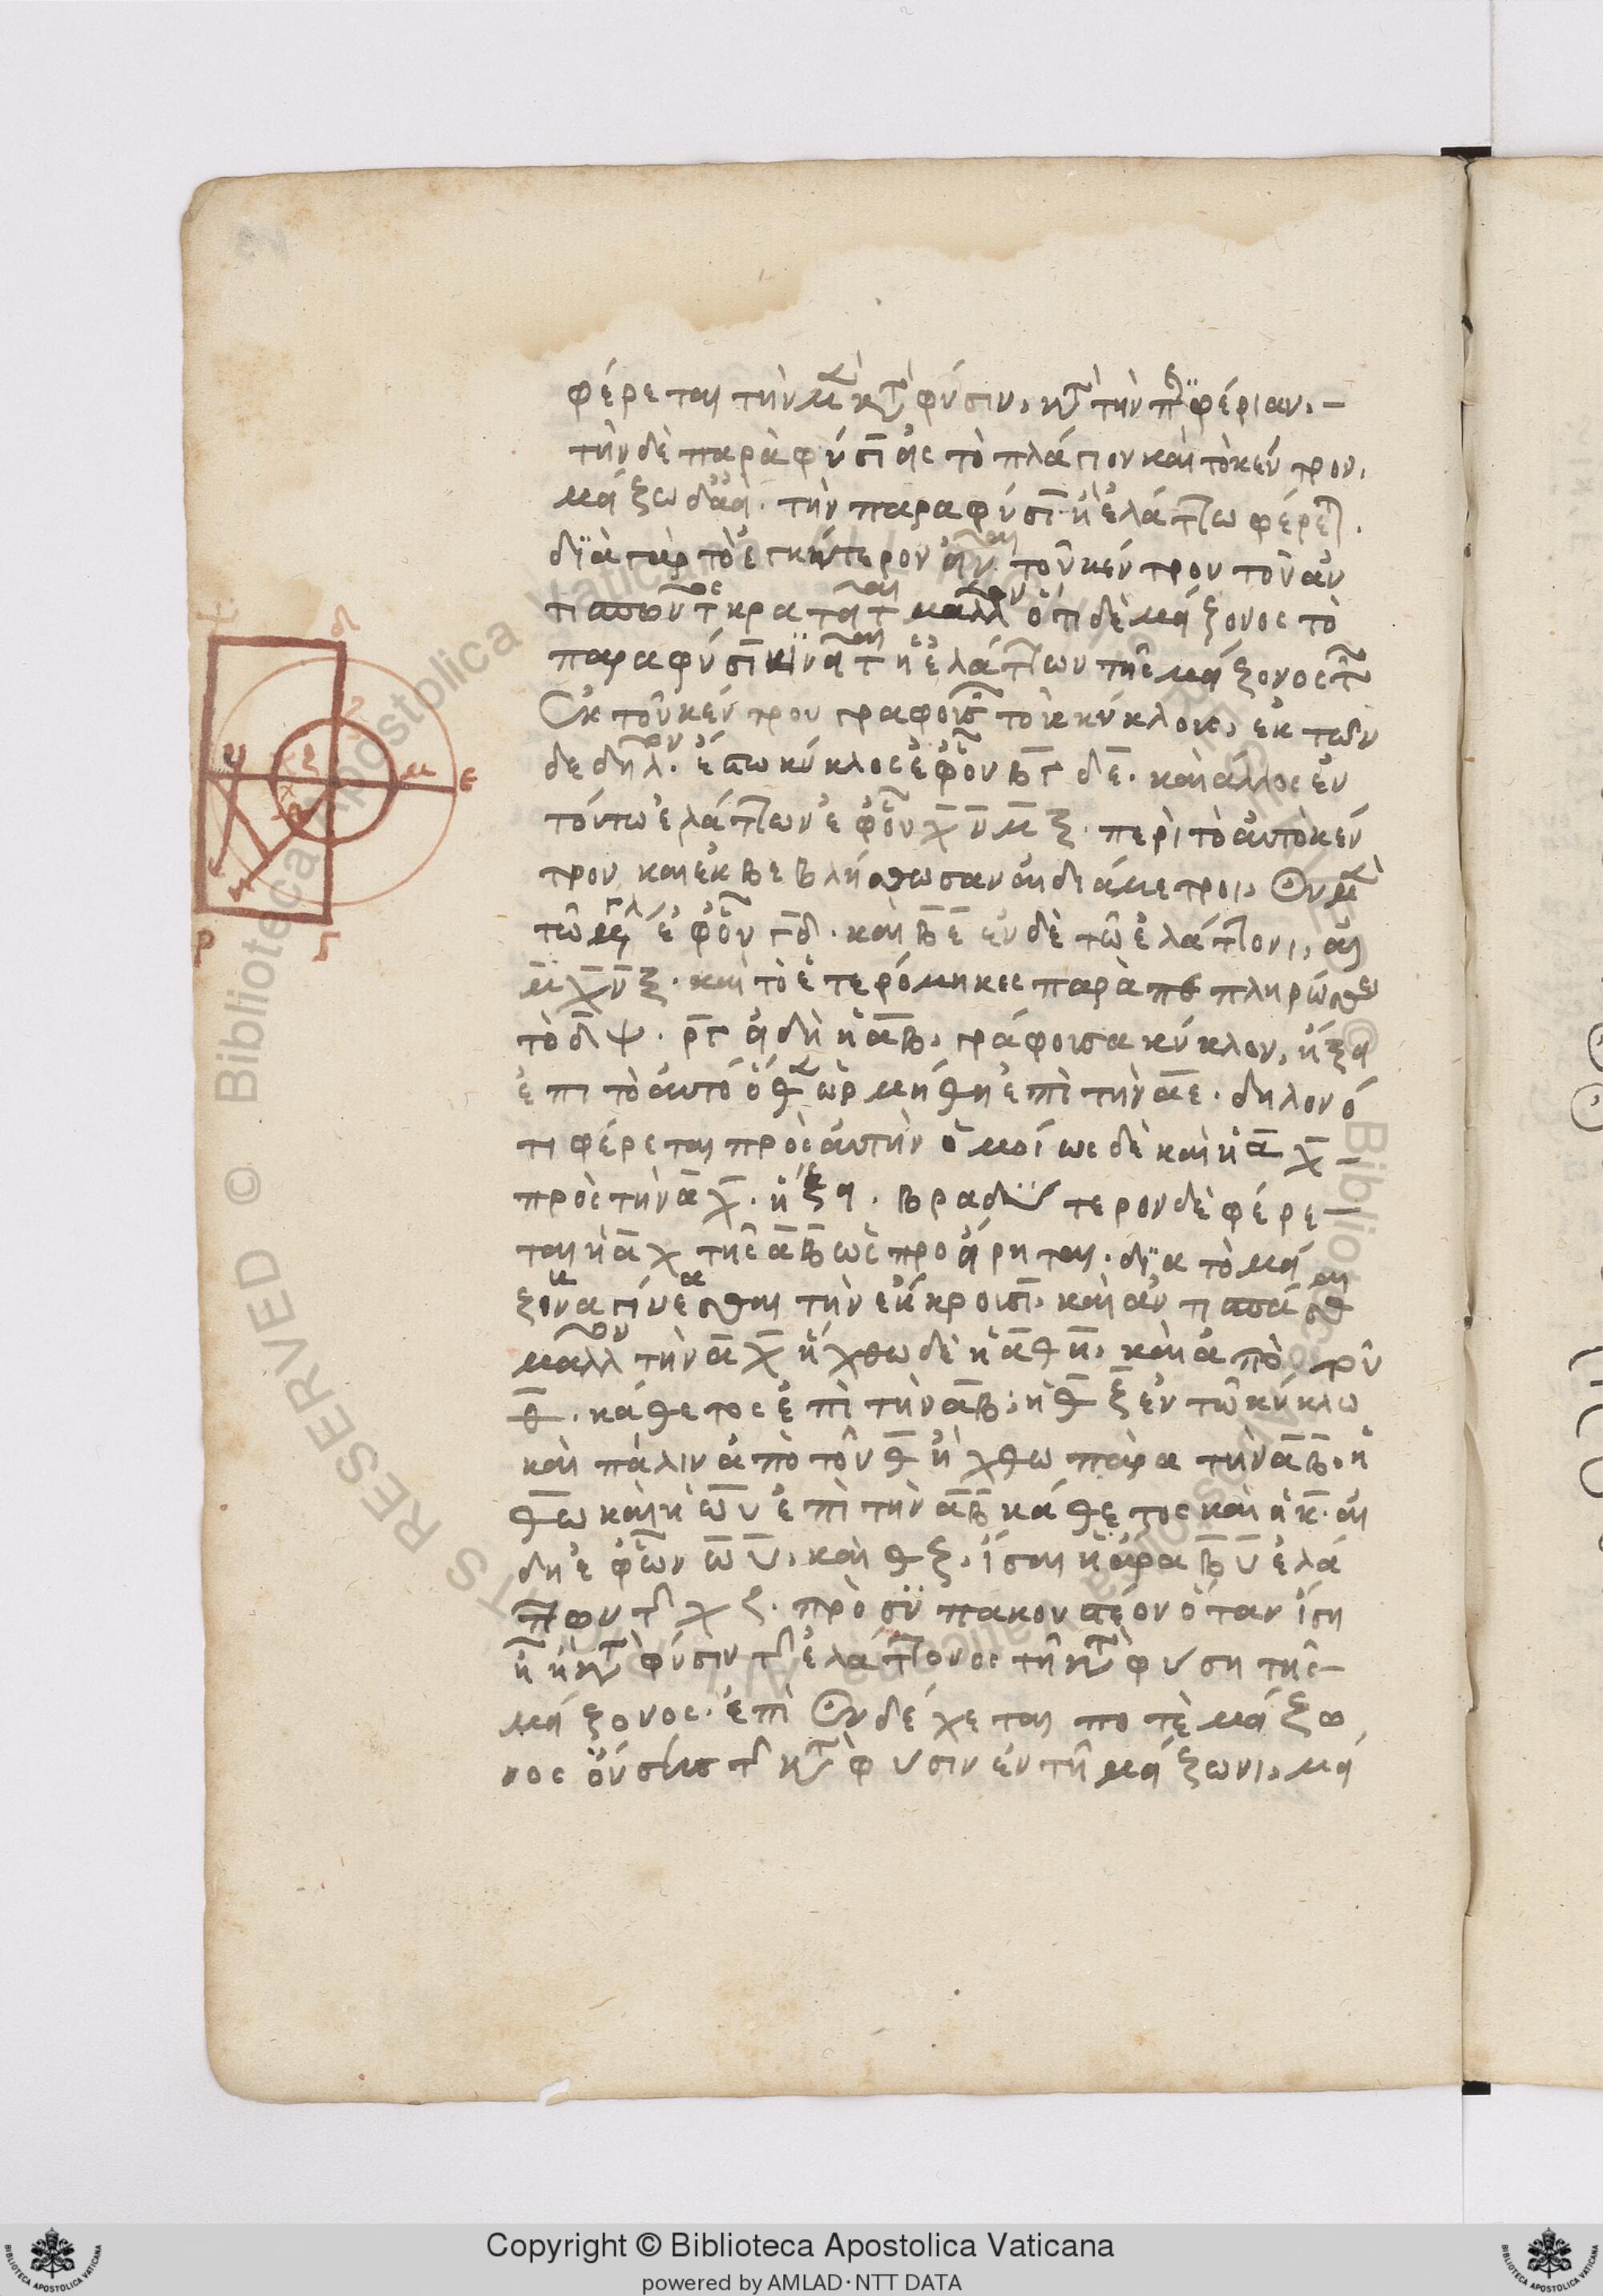 φέρεται τὴν μὲν κατὰ φύσιν, κατὰ τὴν περιφέριαν.
τὴν δὲ παρὰ φύσιν εἰς τὸ πλάγιον καὶ τὸ κέντρον.
μείζω δ' ἀεὶ. τὴν παρα φύσιν ἡ ἐλάττω φέρεται.
διὰ γὰρ τὸ ἐγγύτερον εἶναι τοῦ κέντρου τοῦ ἀν
τισπῶντος κρατεῖται μᾶλλον ὅτι δὲ μείζονος τὸ
παρα φύσιν κινεῖται ἡ ἐλάττων τῆς μείζονος τῶν
ἐκ τοῦ κέντρου γραφουσῶν τοὺς κύκλους, ἐκ τῶν
δε δῆλον. ἔστω κύκλος ἐφ' οὗ β γ δ ε. καὶ ἄλλος ἐν
τούτω ἐλάττων ἐφ' οὗ χ ν μ ξ. περὶ τὸ αὐτὸ κέν
τρον καὶ ἐκβεβλήσθωσαν αἱ διάμετροι, ἐν μὲν
τῶ μεγάλω ἐφ' ὧν γδ. καὶ β ε ἐν δὲ τῶ ἐλάττονι, αἱ
μ χ ν ξ. καὶ τὸ ἑτερόμηκες παρα πεπληρώσθω
τὸ δ ψ. ρ γ εἰ δὴ ἡ αβ, γράφουσα κύκλον, ἥξει
ἐπι τὸ αὐτό ὅθεν ὡρμήθη ἐπὶ τὴν αε. δηλονό
τι φέρεται πρὸς αὑτὴν ὁμοίως δὲ καὶ ἡ α χ
πρὸς τὴν α χ. ἥξει. βραδύτερον δὲ φέρε
ται ἡ α χ τῆς αβ ὡς προείρηται. διὰ τὸ μεί
ζονα γίνεσθαι τὴν ἔκκρουσιν, καὶ ἀντισπᾶσθαι
μᾶλλον τὴν α χ ἤχθω δὲ ἡ α θ η, καὶ ἀπὸ τοῦ
θ. κάθετος ἐπὶ τὴν αβ, ἡ θ ξ ἐν τῶ κύκλω
καὶ πάλιν ἀπὸ τοῦ θ ἤχθω παρα τὴν αβ, ἡ
θω καὶ ἡ ωυ ἐπὶ τὴν αβ κάθετος καὶ ἡ κ. αἱ
δὴ ἐφ' ὧν ω υ, καὶ θ ξ, ἴσαι ἡ ἄρα β υ ἐλά
ττων τῆς χ ξ. προσϋπακουστέον ὅταν ἴση
ἦ ἡ κατὰ φύσιν τῆς ἐλάττονος τῆ κατὰ φύση τῆς
μείζονος. ἐπὶ ἐνδέχεται ποτὲ μείζω
νος οὔσης τῆς κατὰ φύσιν ἐν τῆ μείζωνι, μεί
Copyright © Biblioteca Apostolica Vaticana
powered by AMLAD·NTT DATA